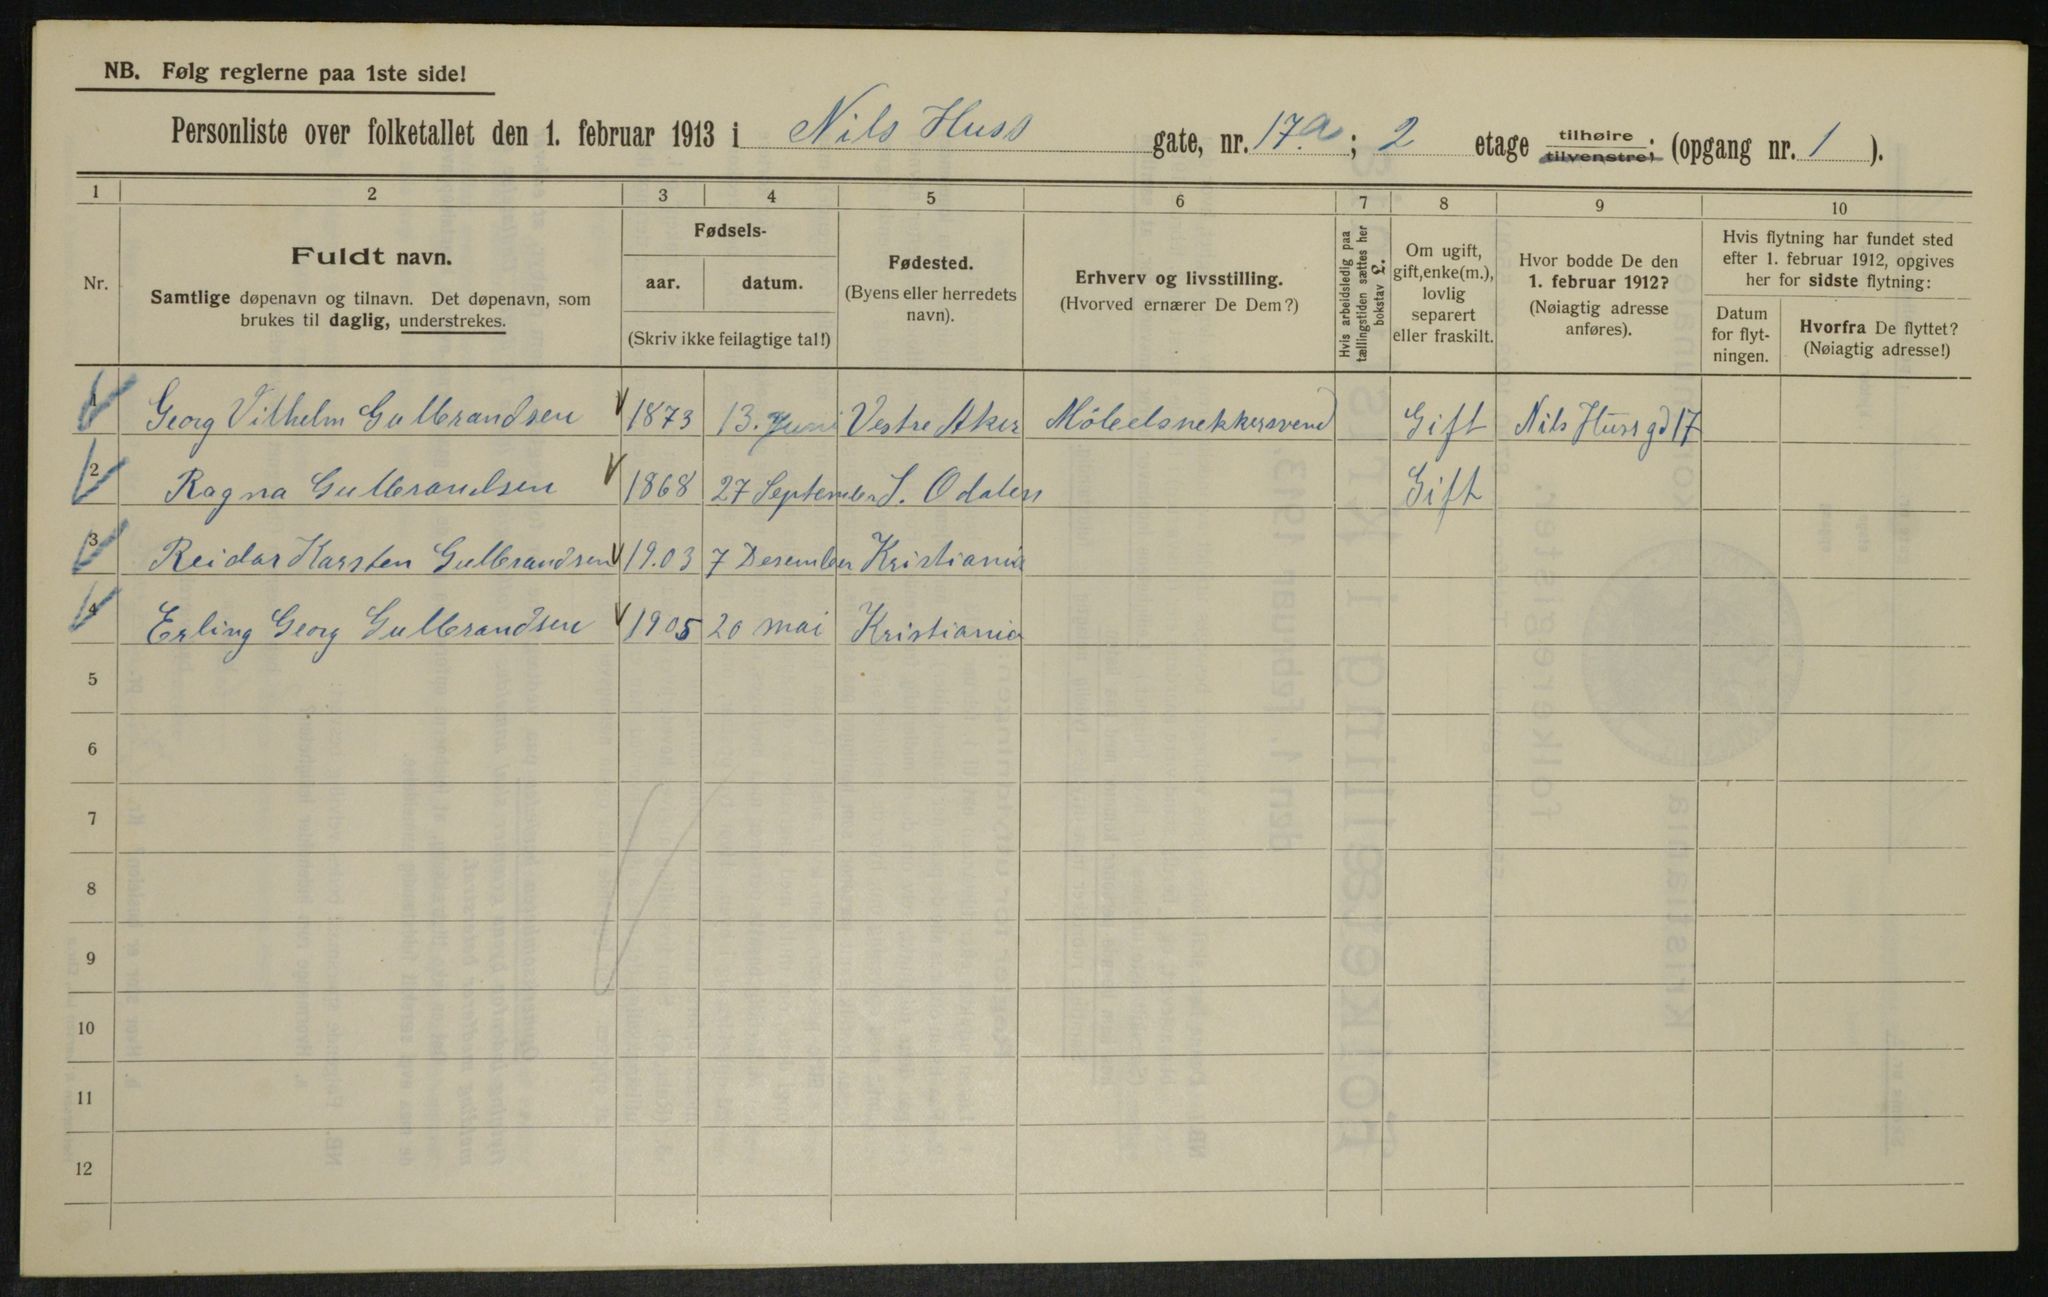 NB. Følg reglerne paa 1ste side!
Personliste over folketallet den 1. februar 1913 i Nils Huss gate, nr. 17.a; 2 etage tilhøire tilvenstre; (opgang nr. 1 ).
1 2 3 4 5 6 7 8 9 10
Nr.
Fuldt navn.
Samtlige døpenavn og tilnavn. Det døpenavn, som
brukes til daglig, understrekes.
Fødsels-
aar. datum.
(Skriv ikke feilagtige tal!)
Fødested.
(Byens eller herredets
navn).
Erhverv og livsstilling.
(Hvorved ernærer De Dem?)
Hvis arbeidsledig paa
tællingstiden sættes her
bokstav L.
Om ugift,
gift, enke(m.),
lovlig
separert
eller fraskilt.
Hvor bodde De den
1. februar 1912?
(Nøiagtig adresse
anføres).
Hvis flytning har fundet sted
efter 1. februar 1912, opgives
her for sidste flytning:
Datum
for flyt-
ningen.
Hvorfra De flyttet?
(Nøiagtig adresse!)
1 Georg Vilhelm Gulbrandsen 1873 13. Juni Vestre Aker Möbelsnekkersvend Gift Nils Hussgd 17
2 Ragna Gulbrandsen 1868 27 September S. Odalen Gift
3 Reidar Karsten Gulbrandsen 19.03 7 Desember Kristiania
4 Erling Georg Gulbrandsen 1905 20 mai Kristiania
5
6
7
8
9
10
11
12